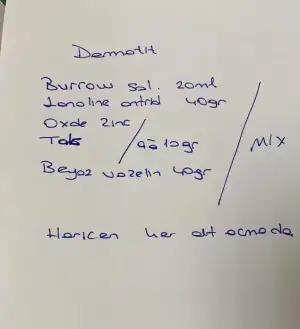 Dermatit
Burrow sol. 20ml
Lanoline anhid 40gr
Oxde zinc
Talk / aā 10gr
Beyaz vazelin 40gr
MIX
Haricen her alt açmada